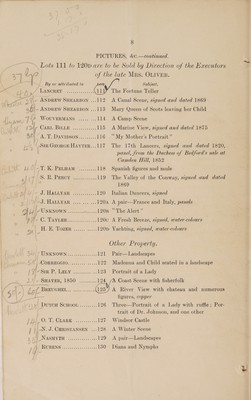 8
PICTURES, &c.—continued.
Lots 111 to 120B are to be Sold by Direction of the Executors
of the late MRS. OLIVER.
By or attributed to Subject.
LANCRET 111 The Fortune Teller
ANDREW SHEARBON ...112 A Canal Scene, signed and dated 1869
ANDREW SHEARBON ...113 Mary Queen of Scots leaving her Child
WOUVERMANS ......114 A Camp Scene
CARL BILLE ......115 A Marine View, signed and dated 1875
A. T. DAVIDSON ......116 "My Mother's Portrait"
SIR GEORGE HAYTER ...117 The 17th Lancers, signed and dated 1820,
panel, from the Duchess of Bedford's sale at
Camden Hill, 1852
T. K. PELHAM ......118 Spanish figures and mule
S. R. PERCY ......119 The Valley of the Conway, signed and dated
1869
J. HALLYAR ......120 Italian Dancers, signed
J. HALLYAR ......120A A pair—France and Italy, panels
UNKNOWN ......120B "The Alert"
C. TAYLER ......120C A Fresh Breeze, signed, water-colours
H. E. TOZER ......120D Yachting, signed, water-colours
Other Property.
UNKNOWN ......121 Pair—Landscapes
CORREGGIO ......122 Madonna and Child seated in a landscape
SIR P. LELY ......123 Portrait of a Lady
SHAYER, 1850 ......124 A Coast Scene with fisherfolk
BREUGHEL 125 A River View with chateau and numerous
figures, copper
DUTCH SCHOOL ......126 Three—Portrait of a Lady with ruffle; Por-
trait of Dr. Johnson, and one other
O. T. CLARK ......127 Windsor Castle
N. J. CHRISTIANSEN ...128 A Winter Scene
NASMYTH ......129 A pair—Landscapes
RUBENS ......130 Diana and Nymphs